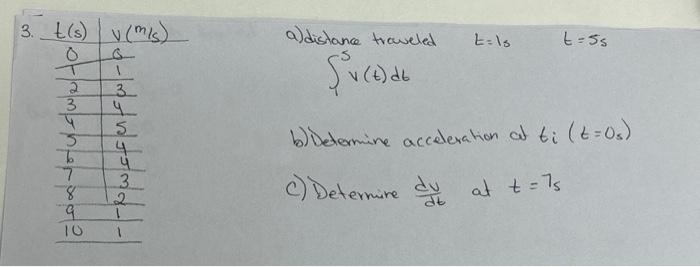 3. t(s) v(m/s)
0 0
1 1
2 3
3 4
4 5
5 4
6 4
7 3
8 2
9 1
10 1
a) distance traveled t=1s t=5s
∫₁⁵ v(t) dt
b) Determine acceleration at ti (t=0s)
c) Determine dv/dt at t=7s